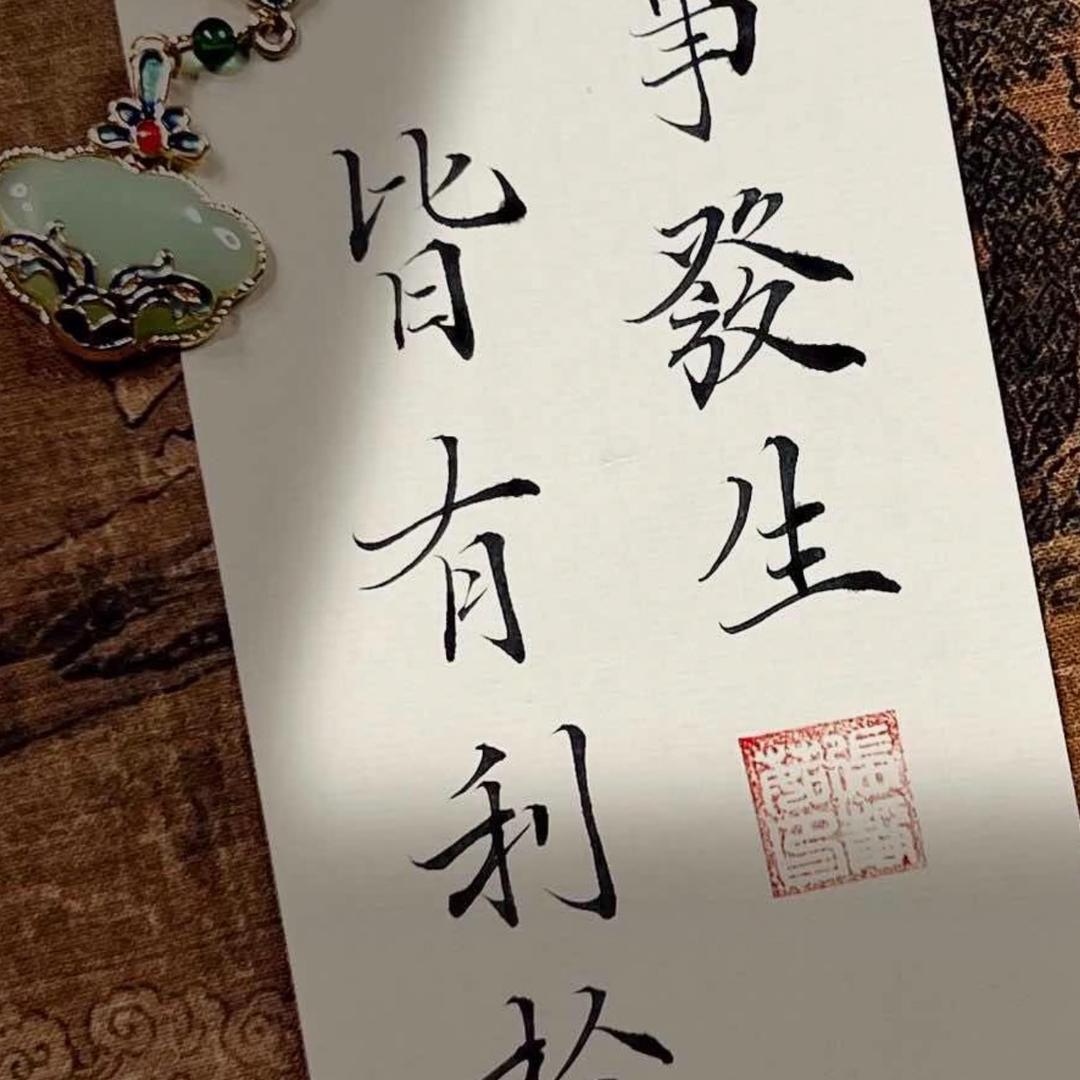 事發生
皆有利於